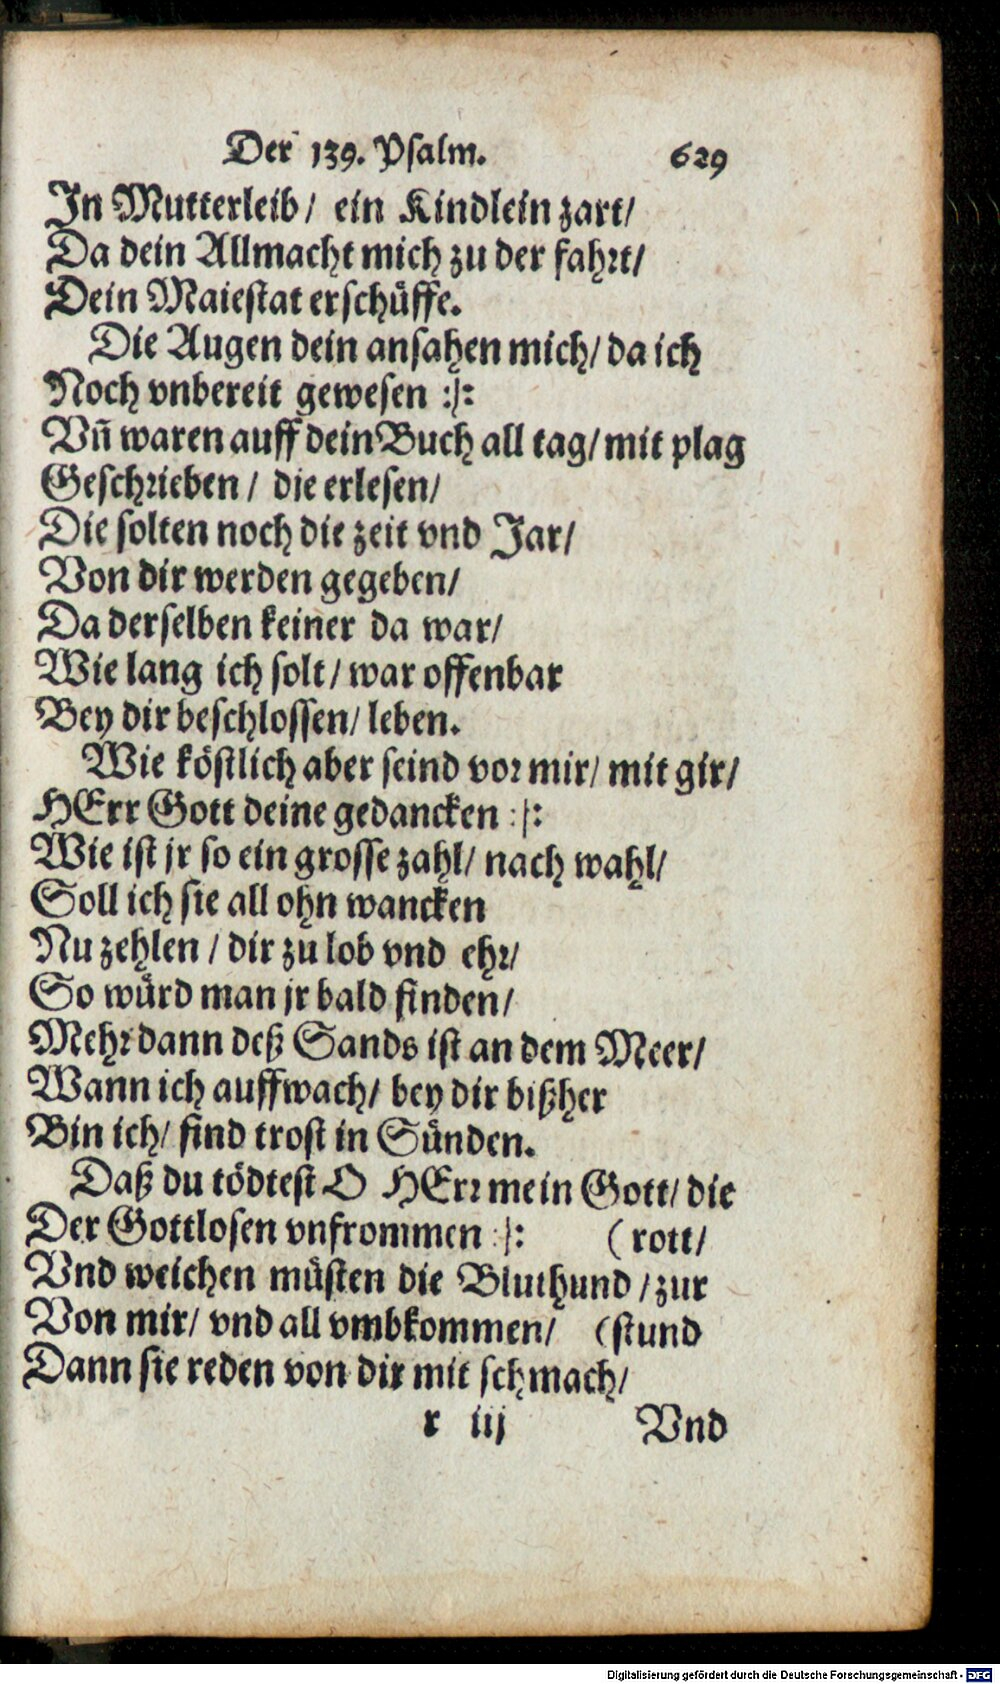 Der 139. Psalm. 629
In Mutterleib/ ein Kindlein zart/
Da dein Allmacht mich zu der fahrt/
Dein Maiestat erschüffe.
Die Augen dein ansahen mich/ da ich
Noch vnbereit gewesen :/:
Vñ waren auff dein Buch all tag/ mit plag
Geschrieben/ die erlesen/
Die solten noch die zeit vnd Jar/
Von dir werden gegeben/
Da derselben keiner da war/
Wie lang ich solt/ war offenbar
Bey dir beschlossen/ leben.
Wie köstlich aber seind vor mir/ mit gir/
HErr Gott deine gedancken :/:
Wie ist jr so ein grosse zahl/ nach wahl/
Soll ich sie all ohn wancken
Nu zehlen/ dir zu lob vnd ehr/
So würd man jr bald finden/
Mehr dann deß Sands ist an dem Meer/
Wann ich auffwach/ bey dir bißher
Bin ich/ find trost in Sünden.
Daß du tödtest O HErr mein Gott/ die
Der Gottlosen vnfrommen :/: (rott/
Vnd weichen müsten die Bluthund/ zur
Von mir/ vnd all vmbkommen/ (stund
Dann sie reden von dir mit schmach/
r iij Vnd
Digitalisierung gefördert durch die Deutsche Forschungsgemeinschaft - DFG